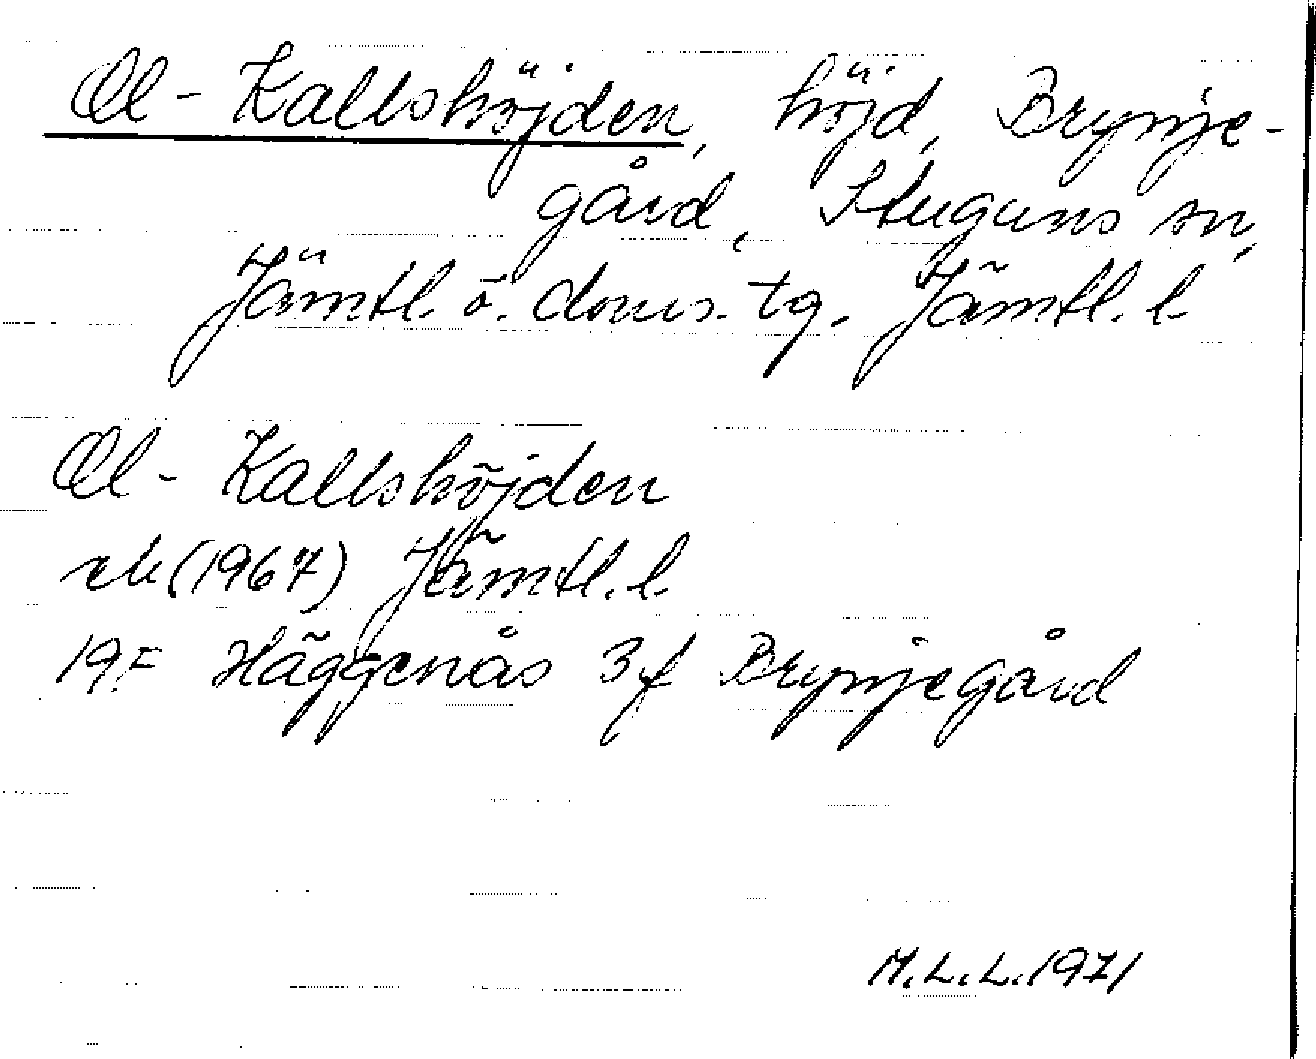 Ol-Kallshöjden, höjd, Brynje-
gård, Stuguns sn,
Jämtl. ö. doms. tg. Jämtl. l
Ol-Kallshöjden
ek (1967) Jämtl. l
19F Häggenås 3f Brynjegård
M.L.L. 1971